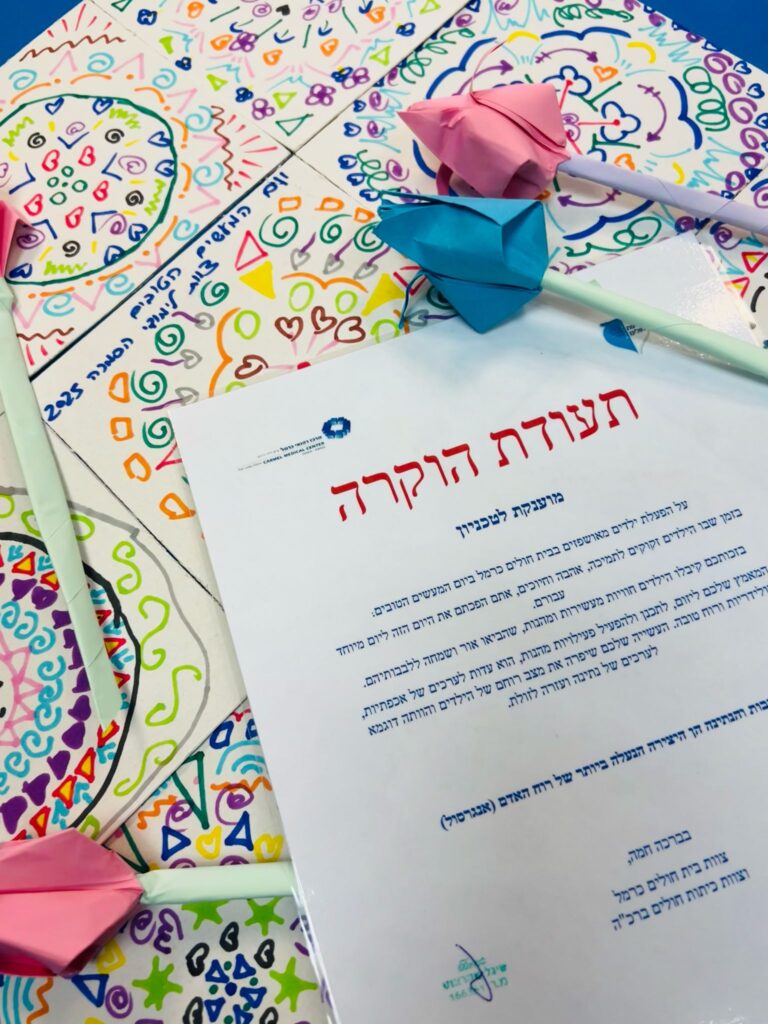 יום המעשים הטובים
צוות לימודי הסמכה 2025
מרכז רפואי כרמל
CARMEL MEDICAL CENTER
תעודת הוקרה
מוענקת לטכניון
על הפעלת ילדים מאושפזים בבית חולים כרמל ביום המעשים הטובים.
בזמן שבו הילדים זקוקים לתמיכה, אהבה וחיוכים, אתם הפכתם את היום הזה ליום מיוחד
עבורם.
בזכותכם קיבלו הילדים חוויות מעשירות ומהנות, שהביאו אור ושמחה ללבבותיהם.
המאמץ שלכם ליזום, לתכנן ולהפעיל פעילויות מהנות, הוא עדות לערכים של אכפתיות,
ורוח טובה. העשייה שלכם שיפרה את מצב רוחם של הילדים והוותה דוגמא
לערכים של נתינה ועזרה לזולת.
והנתינה הן היצירה הנעלה ביותר של רוח האדם (אנגרסול)
בברכה חמה,
צוות בית חולים כרמל
וצוות כיתות חולים ברכ"ה